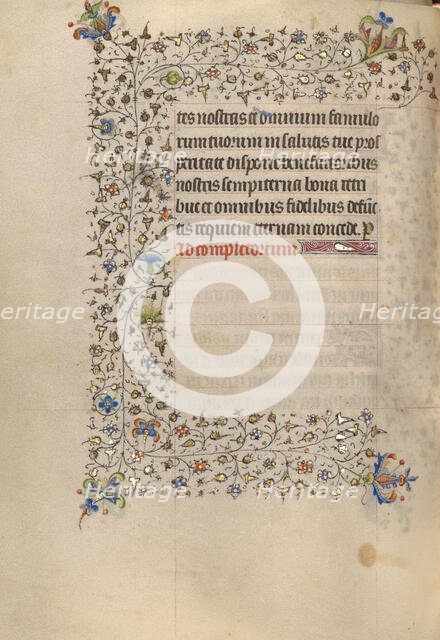 tes nostras et omnium famulo
rum tuorum in salutis tue pros
peritate dispone benefactoribus
nostris sempiterna bona retri
bue et omnibus fidelibus defunc
tis requiem eternam concede. P
Ad completorium
Heritage
Heritage
Heritage
Heritage
Heritage
Heritage